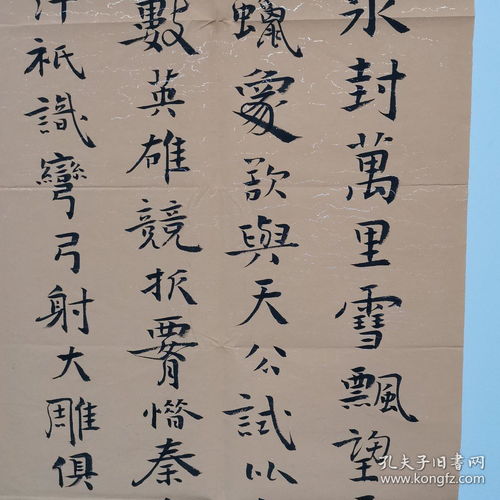 氷封萬里雪飄望
蠟象欲與天公試比
數英雄競折腰惜秦
汗祇識彎弓射大雕俱
孔夫子旧书网
www.kongfz.com